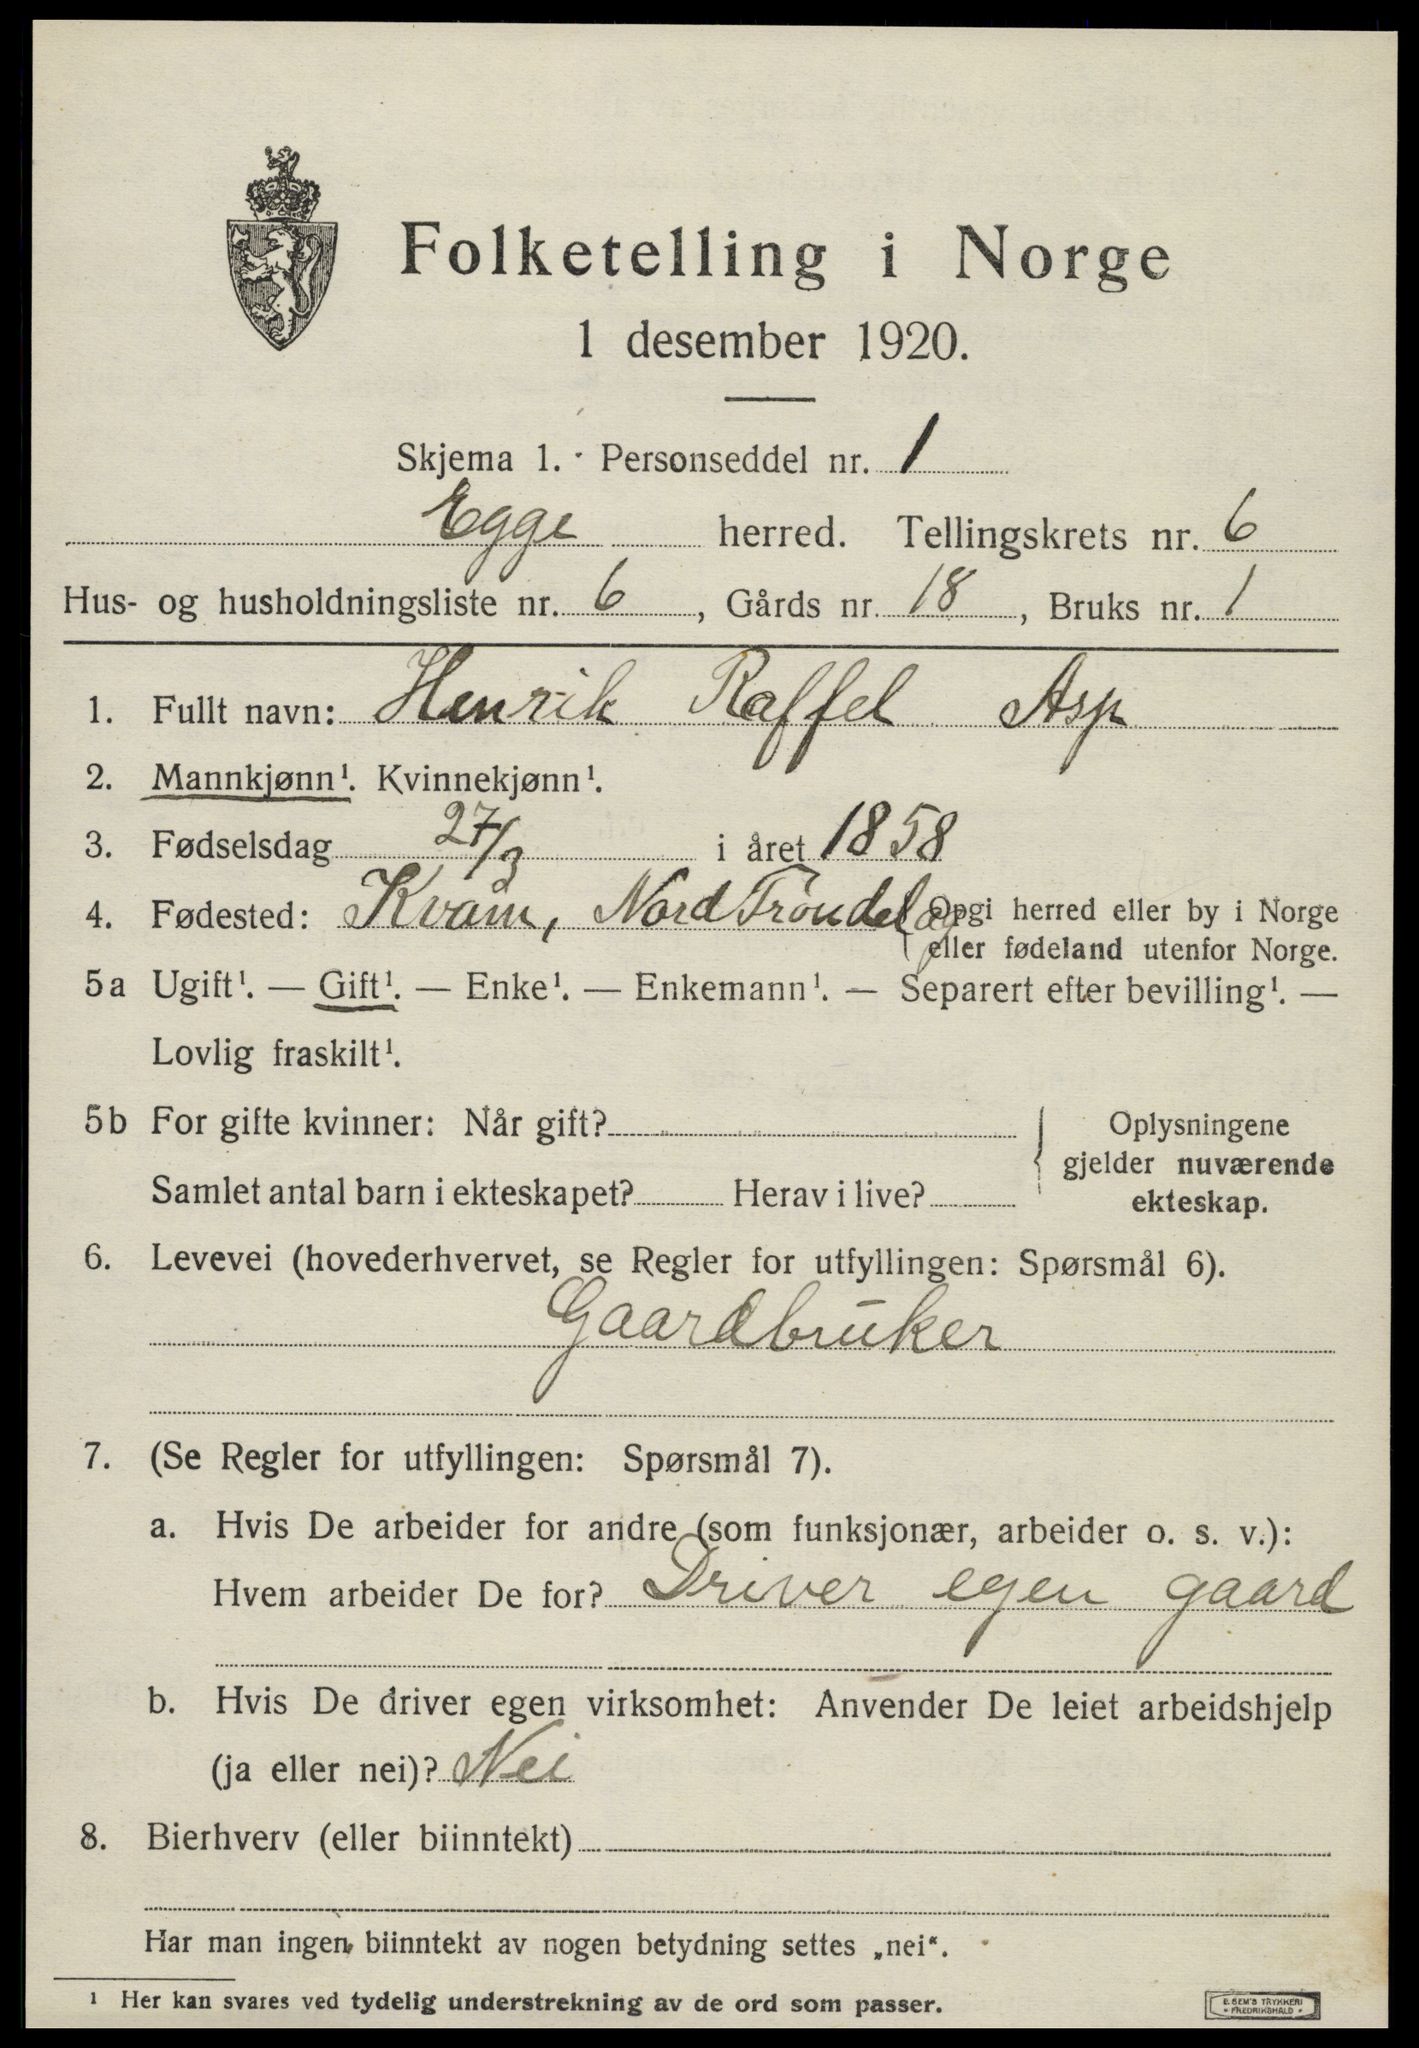 Folketelling i Norge
1 desember 1920.
Skjema 1. · Personseddel nr. 1
Egge herred. Tellingskrets nr. 6
Hus- og husholdningsliste nr. 6, Gårds nr. 18, Bruks nr. 1
1. Fullt navn: Henrik Raffel Asp
2. Mannkjønn¹. Kvinnekjønn¹.
3. Fødselsdag 27/3 i året 1858
4. Fødested: Kvam, Nord Trøndelag Opgi herred eller by i Norge
eller fødeland utenfor Norge.
5a Ugift¹. — Gift¹. — Enke¹. — Enkemann¹. — Separert efter bevilling¹. —
Lovlig fraskilt¹.
5b For gifte kvinner: Når gift?
Samlet antal barn i ekteskapet? Herav i live?
Oplysningene
gjelder nuværende
ekteskap.
6. Levevei (hovederhvervet, se Regler for utfyllingen: Spørsmål 6).
Gaardbruker
7. (Se Regler for utfyllingen: Spørsmål 7).
a. Hvis De arbeider for andre (som funksjonær, arbeider o. s. v.):
Hvem arbeider De for? Driver egen gaard
b. Hvis De driver egen virksomhet: Anvender De leiet arbeidshjelp
(ja eller nei)? Nei
8. Bierhverv (eller biinntekt)
Har man ingen biinntekt av nogen betydning settes „nei“.
¹ Her kan svares ved tydelig understrekning av de ord som passer.
E. SEM'S TRYKKERI
• FREDRIKSHALD •